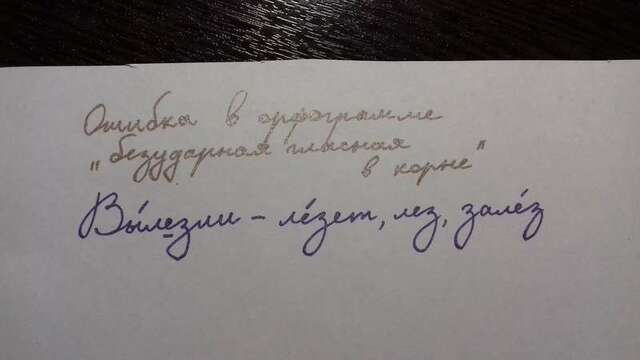 Ошибка в орфограмме
"безударная гласная
в корне"
Вы́лезли – ле́зет, лез, зале́з